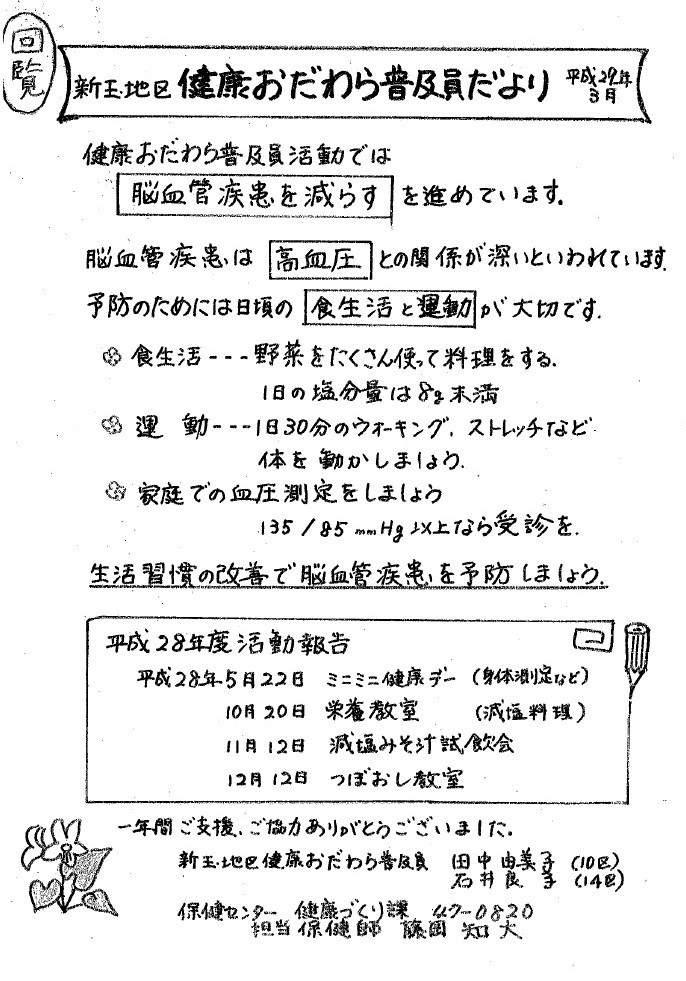 回覧
新玉地区 健康おだわら普及員だより 平成29年3月
健康おだわら普及員活動では
脳血管疾患を減らす を進めています。
脳血管疾患は 高血圧 との関係が深いといわれています。
予防のためには日頃の 食生活と運動 が大切です。
食生活---野菜をたくさん使って料理をする。
1日の塩分量は8g未満
運 動---1日30分のウォーキング、ストレッチなど
体を動かしましょう。
家庭での血圧測定をしましょう
135/85mmHg以上なら受診を。
生活習慣の改善で脳血管疾患を予防しましょう。
平成28年度活動報告
平成28年5月22日 ミニミニ健康デー (身体測定など)
10月20日 栄養教室 (減塩料理)
11月12日 減塩みそ汁試飲会
12月12日 つぼおし教室
一年間ご支援、ご協力ありがとうございました。
新玉地区健康おだわら普及員 田中由美子 (10区)
石井良子 (14区)
保健センター 健康づくり課 47-0820
担当保健師 藤岡 知大